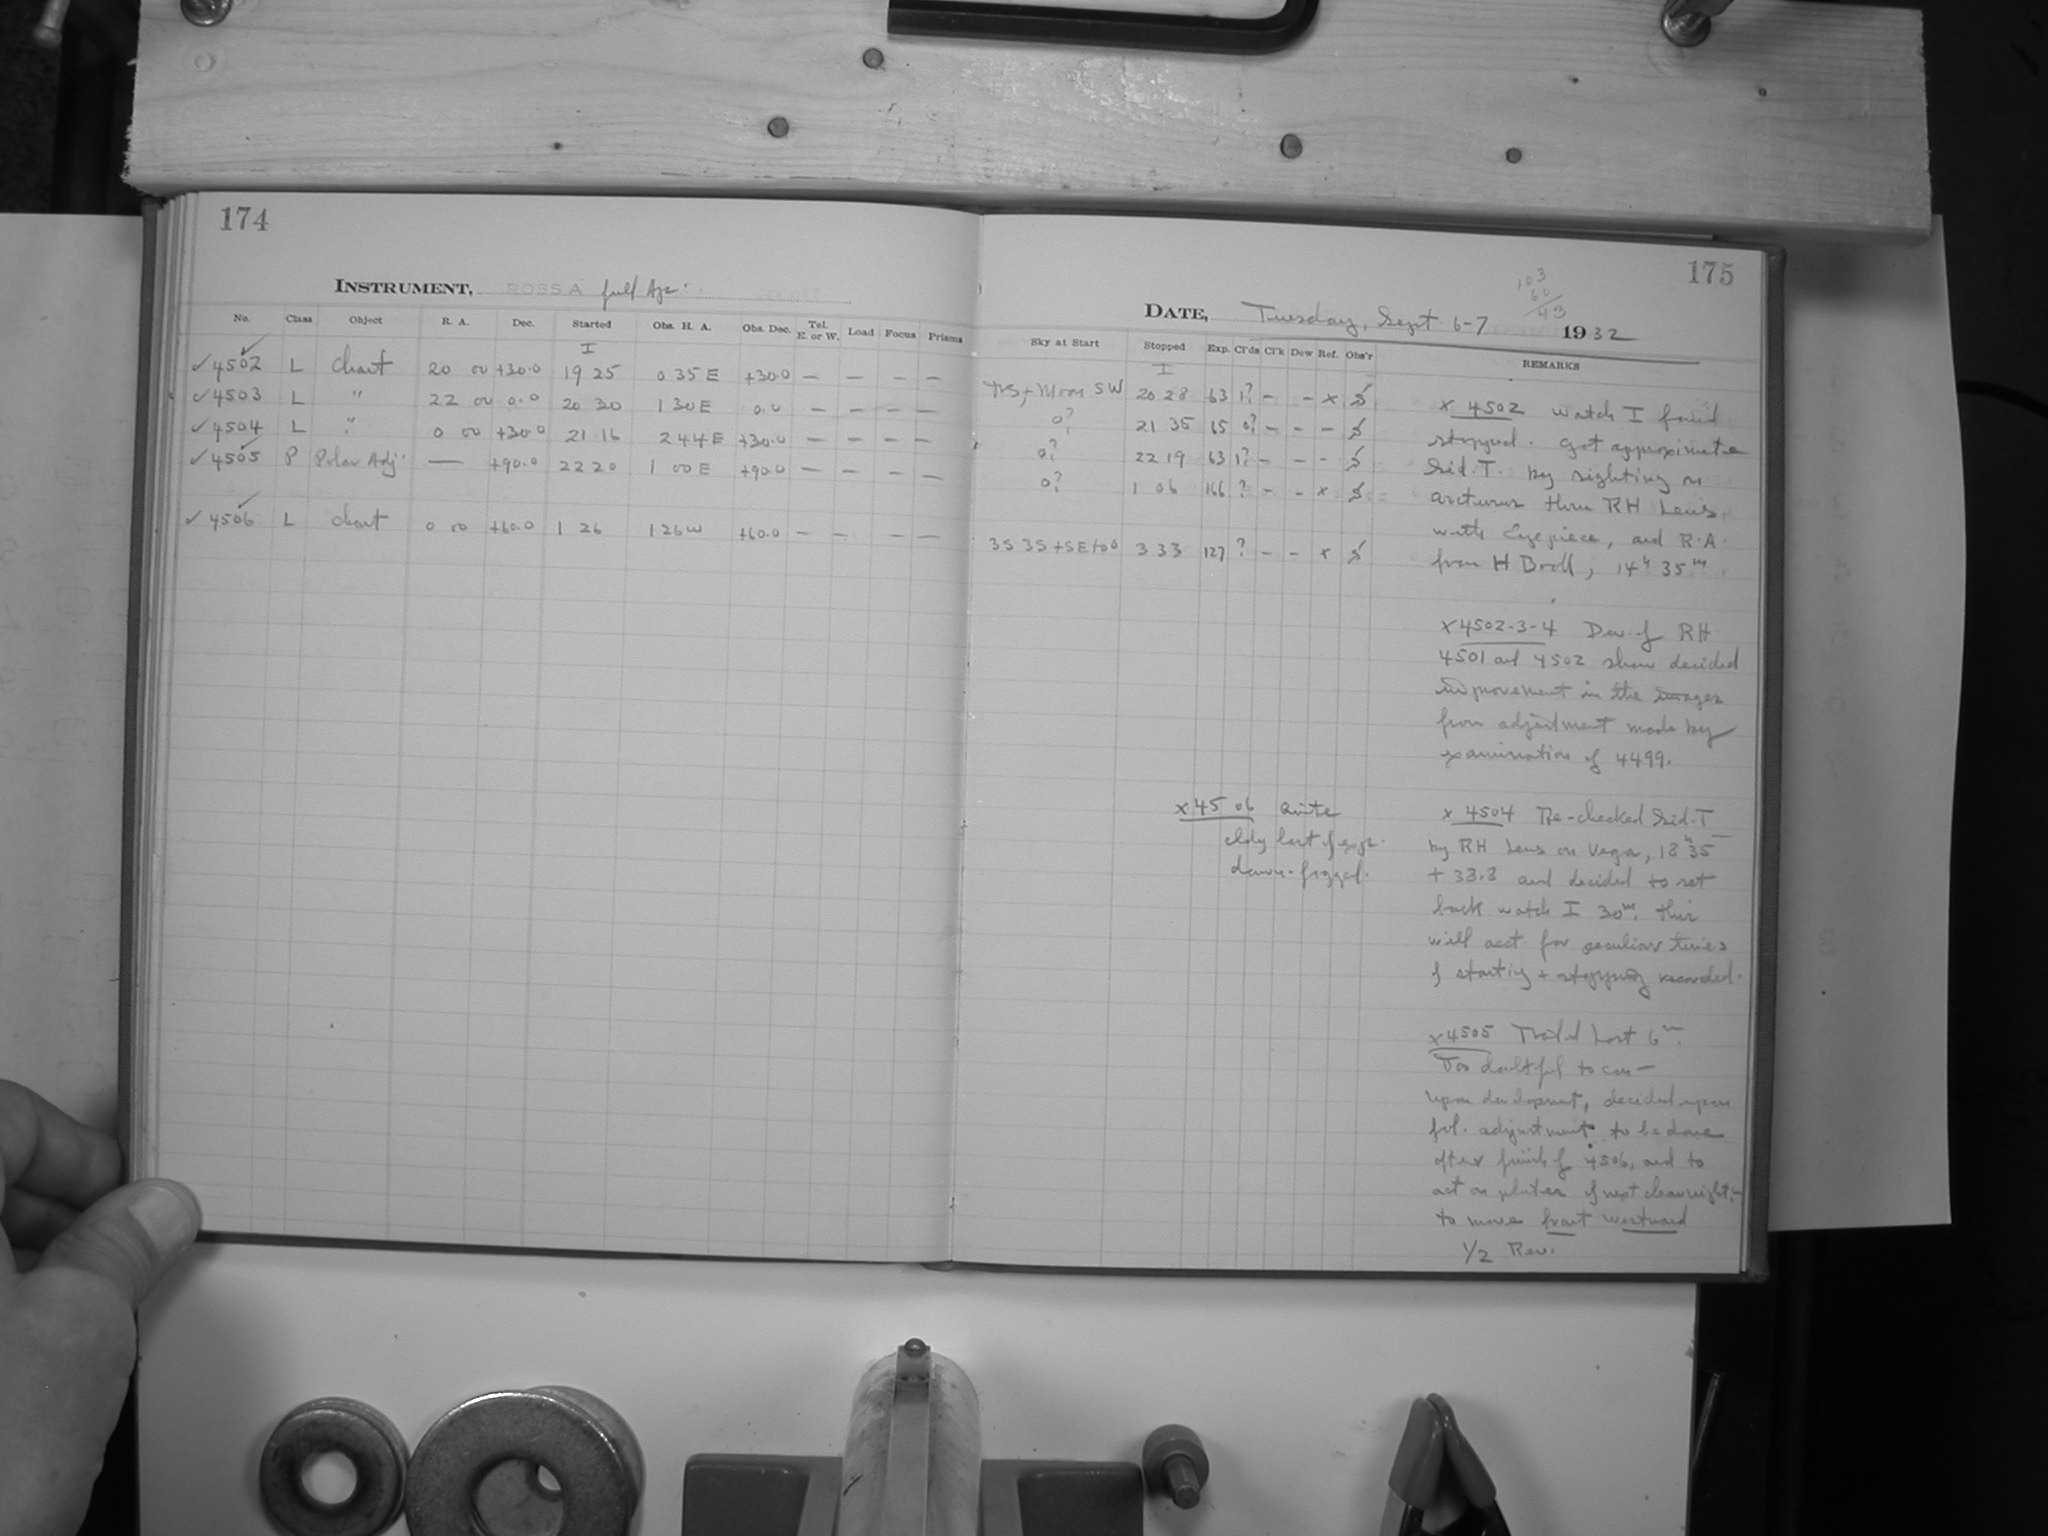 174
INSTRUMENT, ROSS A full Ap.
No. Class Object R. A. Dec. Started Obs. H. A. Obs. Dec. Tel. E. or W. Load Focus Prisms
I
✓ 4502 L Chart 20 00 +30.0 19 25 0 35 E +30.0 — — — —
✓ 4503 L " 22 00 0.0 20 30 1 30 E 0.0 — — — —
✓ 4504 L " 0 00 +30.0 21 16 2 44 E +30.0 — — — —
✓ 4505 P Polar Adj. — +90.0 22 20 1 00 E +90.0 — — — —
✓ 4506 L chart 0 00 +60.0 1 26 1 26 W +60.0 — — — —
175
103
60
43
DATE, Tuesday, Sept 6-7 1932
Sky at Start Stopped Exp. Cl'ds Cl'k Dew Ref. Obs'r REMARKS
I
Moon SW 20 28 63 1? - - x S
0? 21 35 65 0? - - - S
0? 22 19 63 1? - - - S
0? 1 06 166 ? - - x S
3S 3S+SE to 0 3 33 127 ? - - x S
x 4502 watch I found
stopped. Got approximate
Sid. T. by sighting on
arcturus thru RH Lens,
with Eyepiece, and R.A.
from H Broll, 14h 35m
x 4502-3-4 Dev. of RH
4501 and 4502 show decided
improvement in the images
from adjustment made by
examination of 4499.
x 4506 Quite
cldy last of exp.
dawn-fogged.
x 4504 Re-checked Sid. T
by RH Lens on Vega, 18h 35
+ 38.8 and decided to set
back watch I 30m. this
will acct for peculiar times
of starting + stopping recorded.
x 4505 Trailed last 6m.
Too doubtful to
upon development, decided upon
fol. adjustment to be done
after finish of 4506, and to
act on plates of next clear night:-
to move front westward
1/2 Rev.